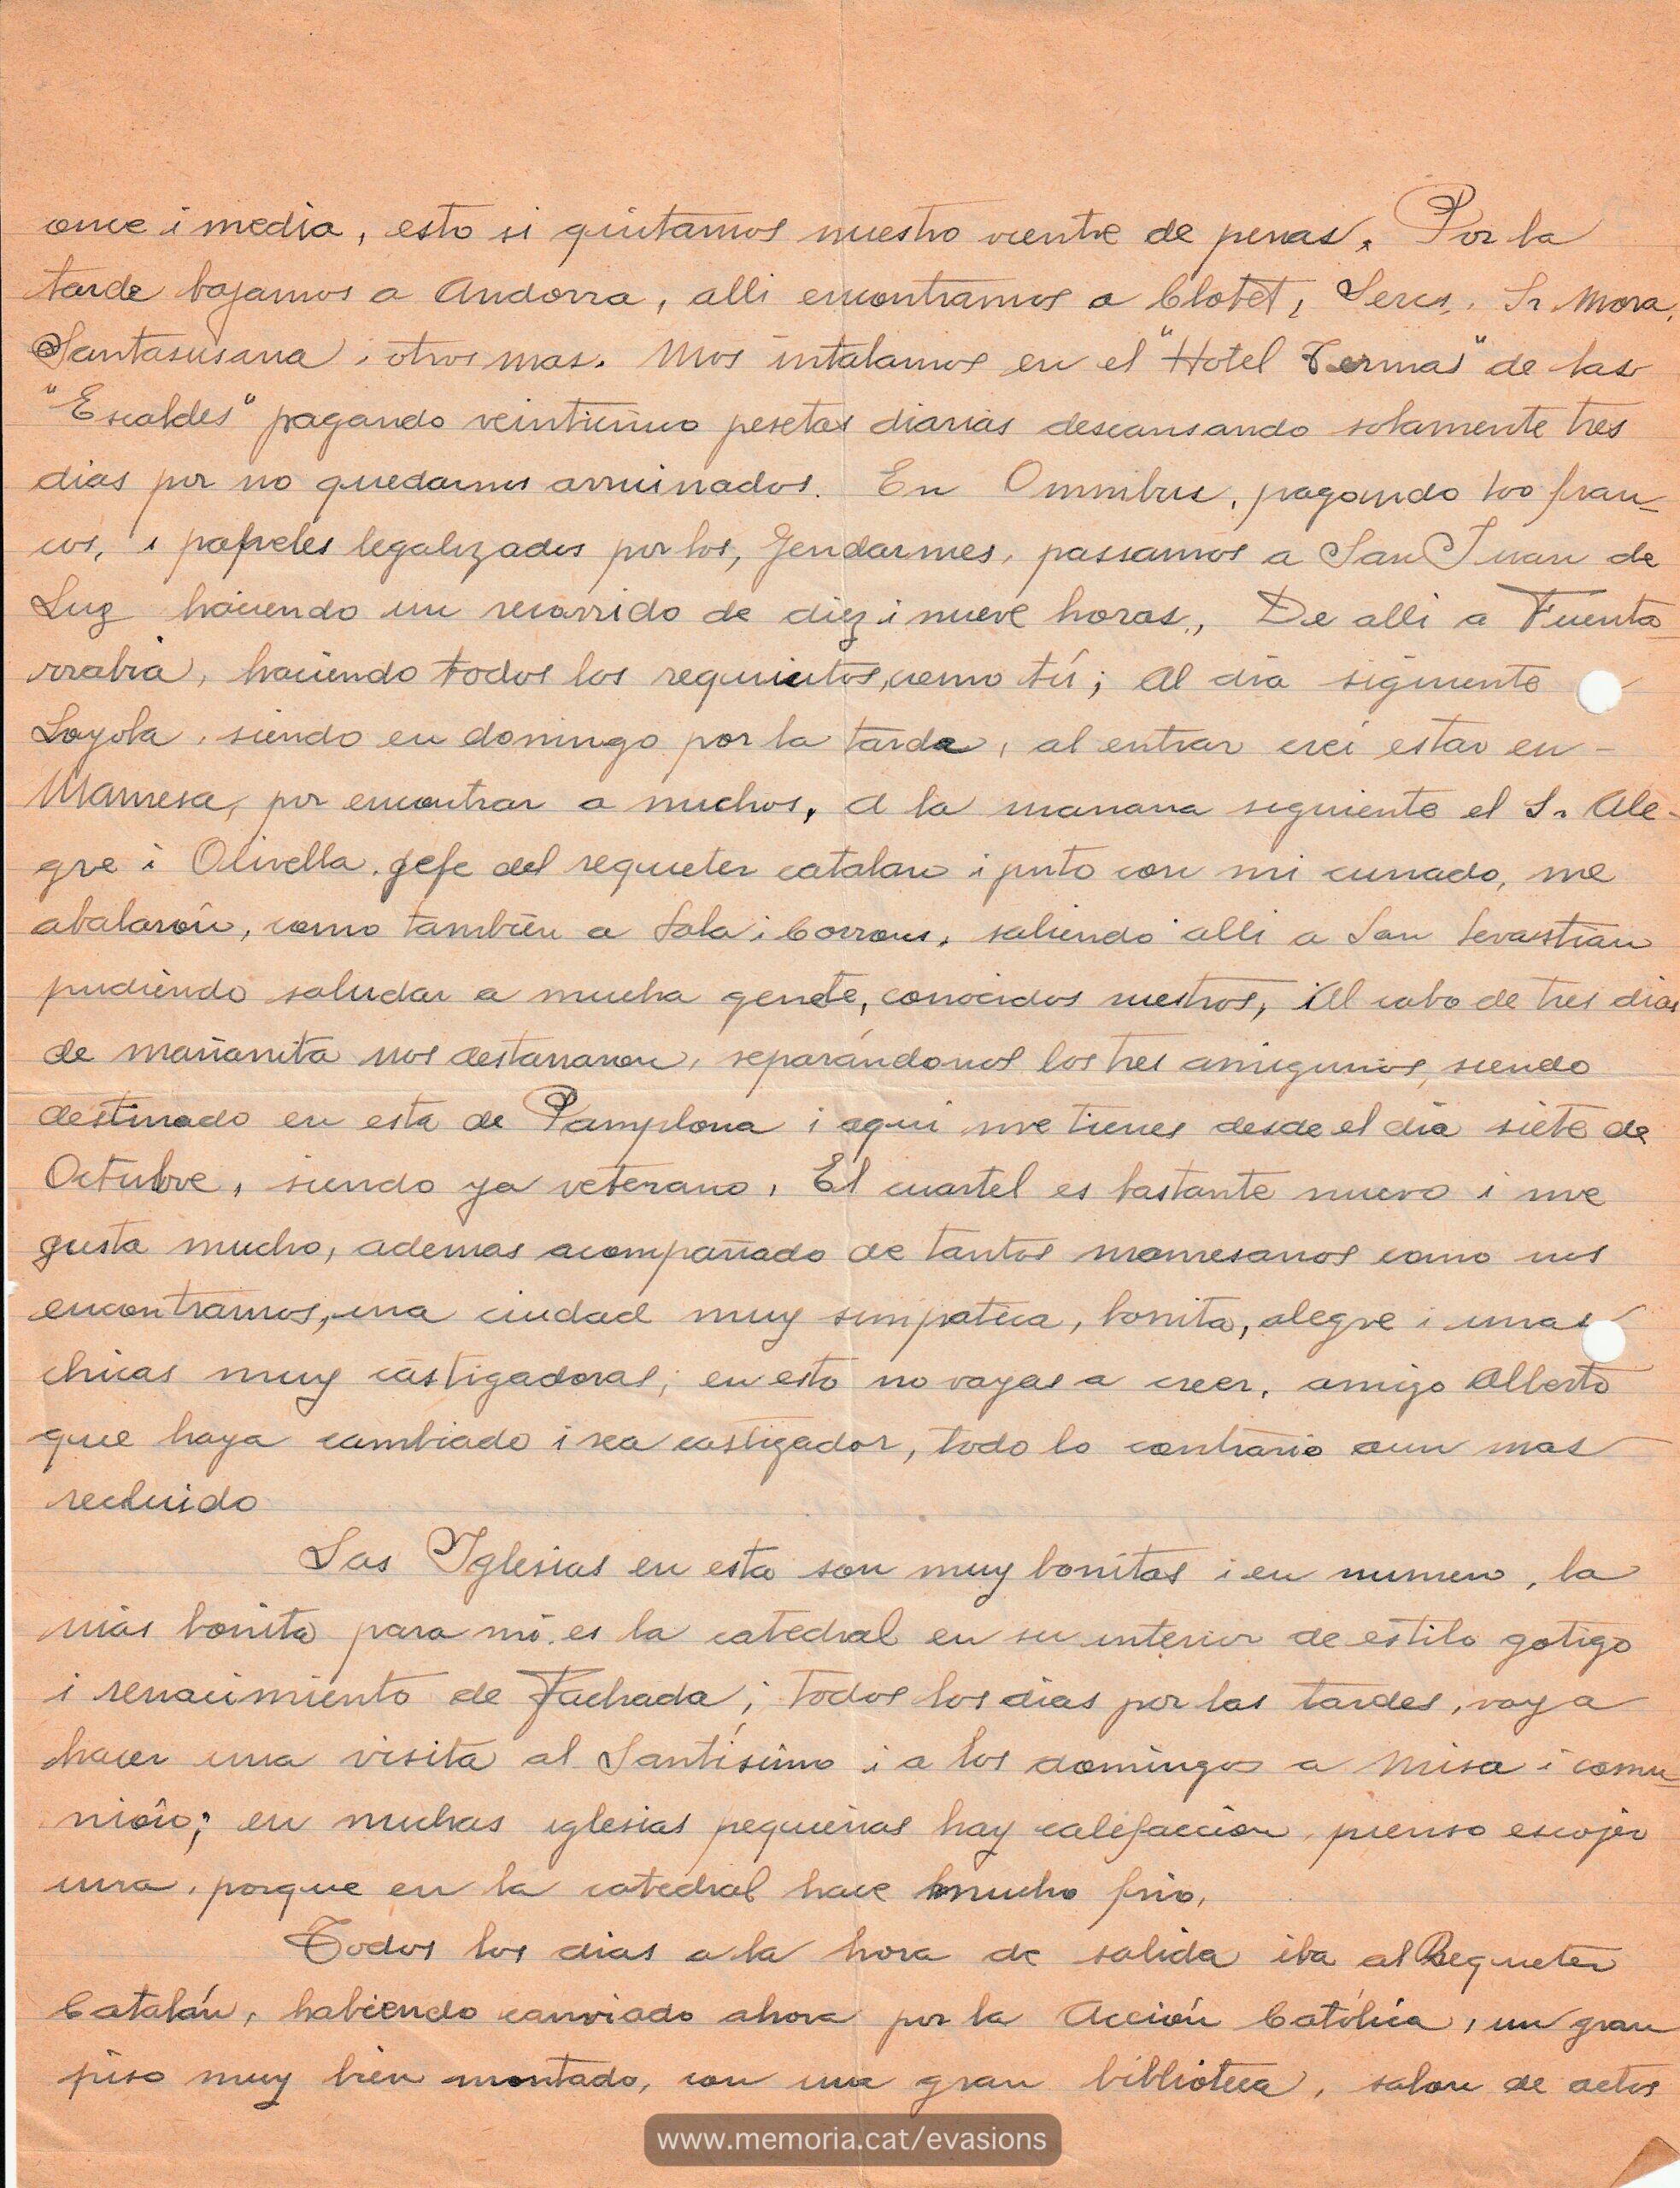 once i media, esto si quitamos nuestro vientre de penas. Por la
tarde bajamos a Andorra, alli encontramos a Clotet, Sercs, Sr Mora,
Santasusana i otros mas. Mos intalamos en el "Hotel Termas" de las
"Escaldes" pagando veinticinco pesetas diarias descansando solamente tres
dias por no quedarnos arruinados. En Omnibus, pagando 100 fran-
cos, i papeles legalizados por los, Gendarmes, passamos a San Juan de
Luz haciendo un recorrido de diez i nueve horas, De alli a Fuenta-
rrabia, haciendo todos los requicitos, como tú; Al dia siguiente
Loyola, siendo en domingo por la tarde, al entrar crei estar en -
Manresa, por encontrar a muchos, A la manana siguiente el Sr Ale-
gre i Olivella, gefe del requeter catalan i junto con mi cunado, me
abalaron, como tambien a Sala i Corrons, saliendo alli a San Sevastian
pudiendo saludar a mucha gente, conocidos nuestros, Al cabo de tres dias
de mañanita nos destarraron, separándonos los tres amiguinos, siendo
destinado en esta de Pamplona i aqui me tienes desde el dia siete de
Octubre, siendo ya veterano, El cuartel es bastante nuevo i me
gusta mucho, ademas acompañado de tantos manresanos como nos
encontramos, una ciudad muy simpatica, bonita, alegre i unas
chicas muy castigadoras; en esto no vayas a creer, amigo Alberto
que haya cambiado i sea castigador, todo lo contrario aun mas
recluido
Las Iglesias en esta son muy bonitas i en numero, la
más bonita para mi es la catedral en su interior de estilo gotigo
i renacimiento de Fachada; todos los dias por las tardes, voy a
hacer una visita al Santísimo i a los domingos a Misa i comu-
nión; en muchas iglesias pequeñas hay calefaccion, pienso escojer
una, porque en la catedral hace mucho frio,
Todos los dias a la hora de salida iba al Requeter
Catalán, habiendo canviado ahora por la Acción Católica, un gran
piso muy bien montado, con una gran biblioteca, salon de actos
www.memoria.cat/evasions